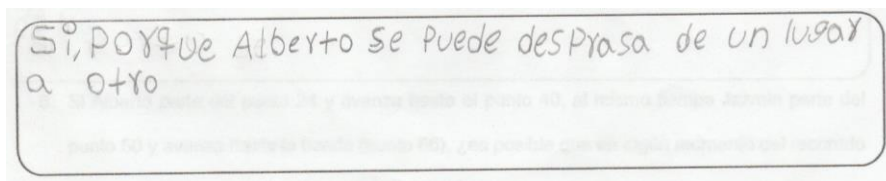 Si, porque Alberto se puede desprasa de un lugar
a otro